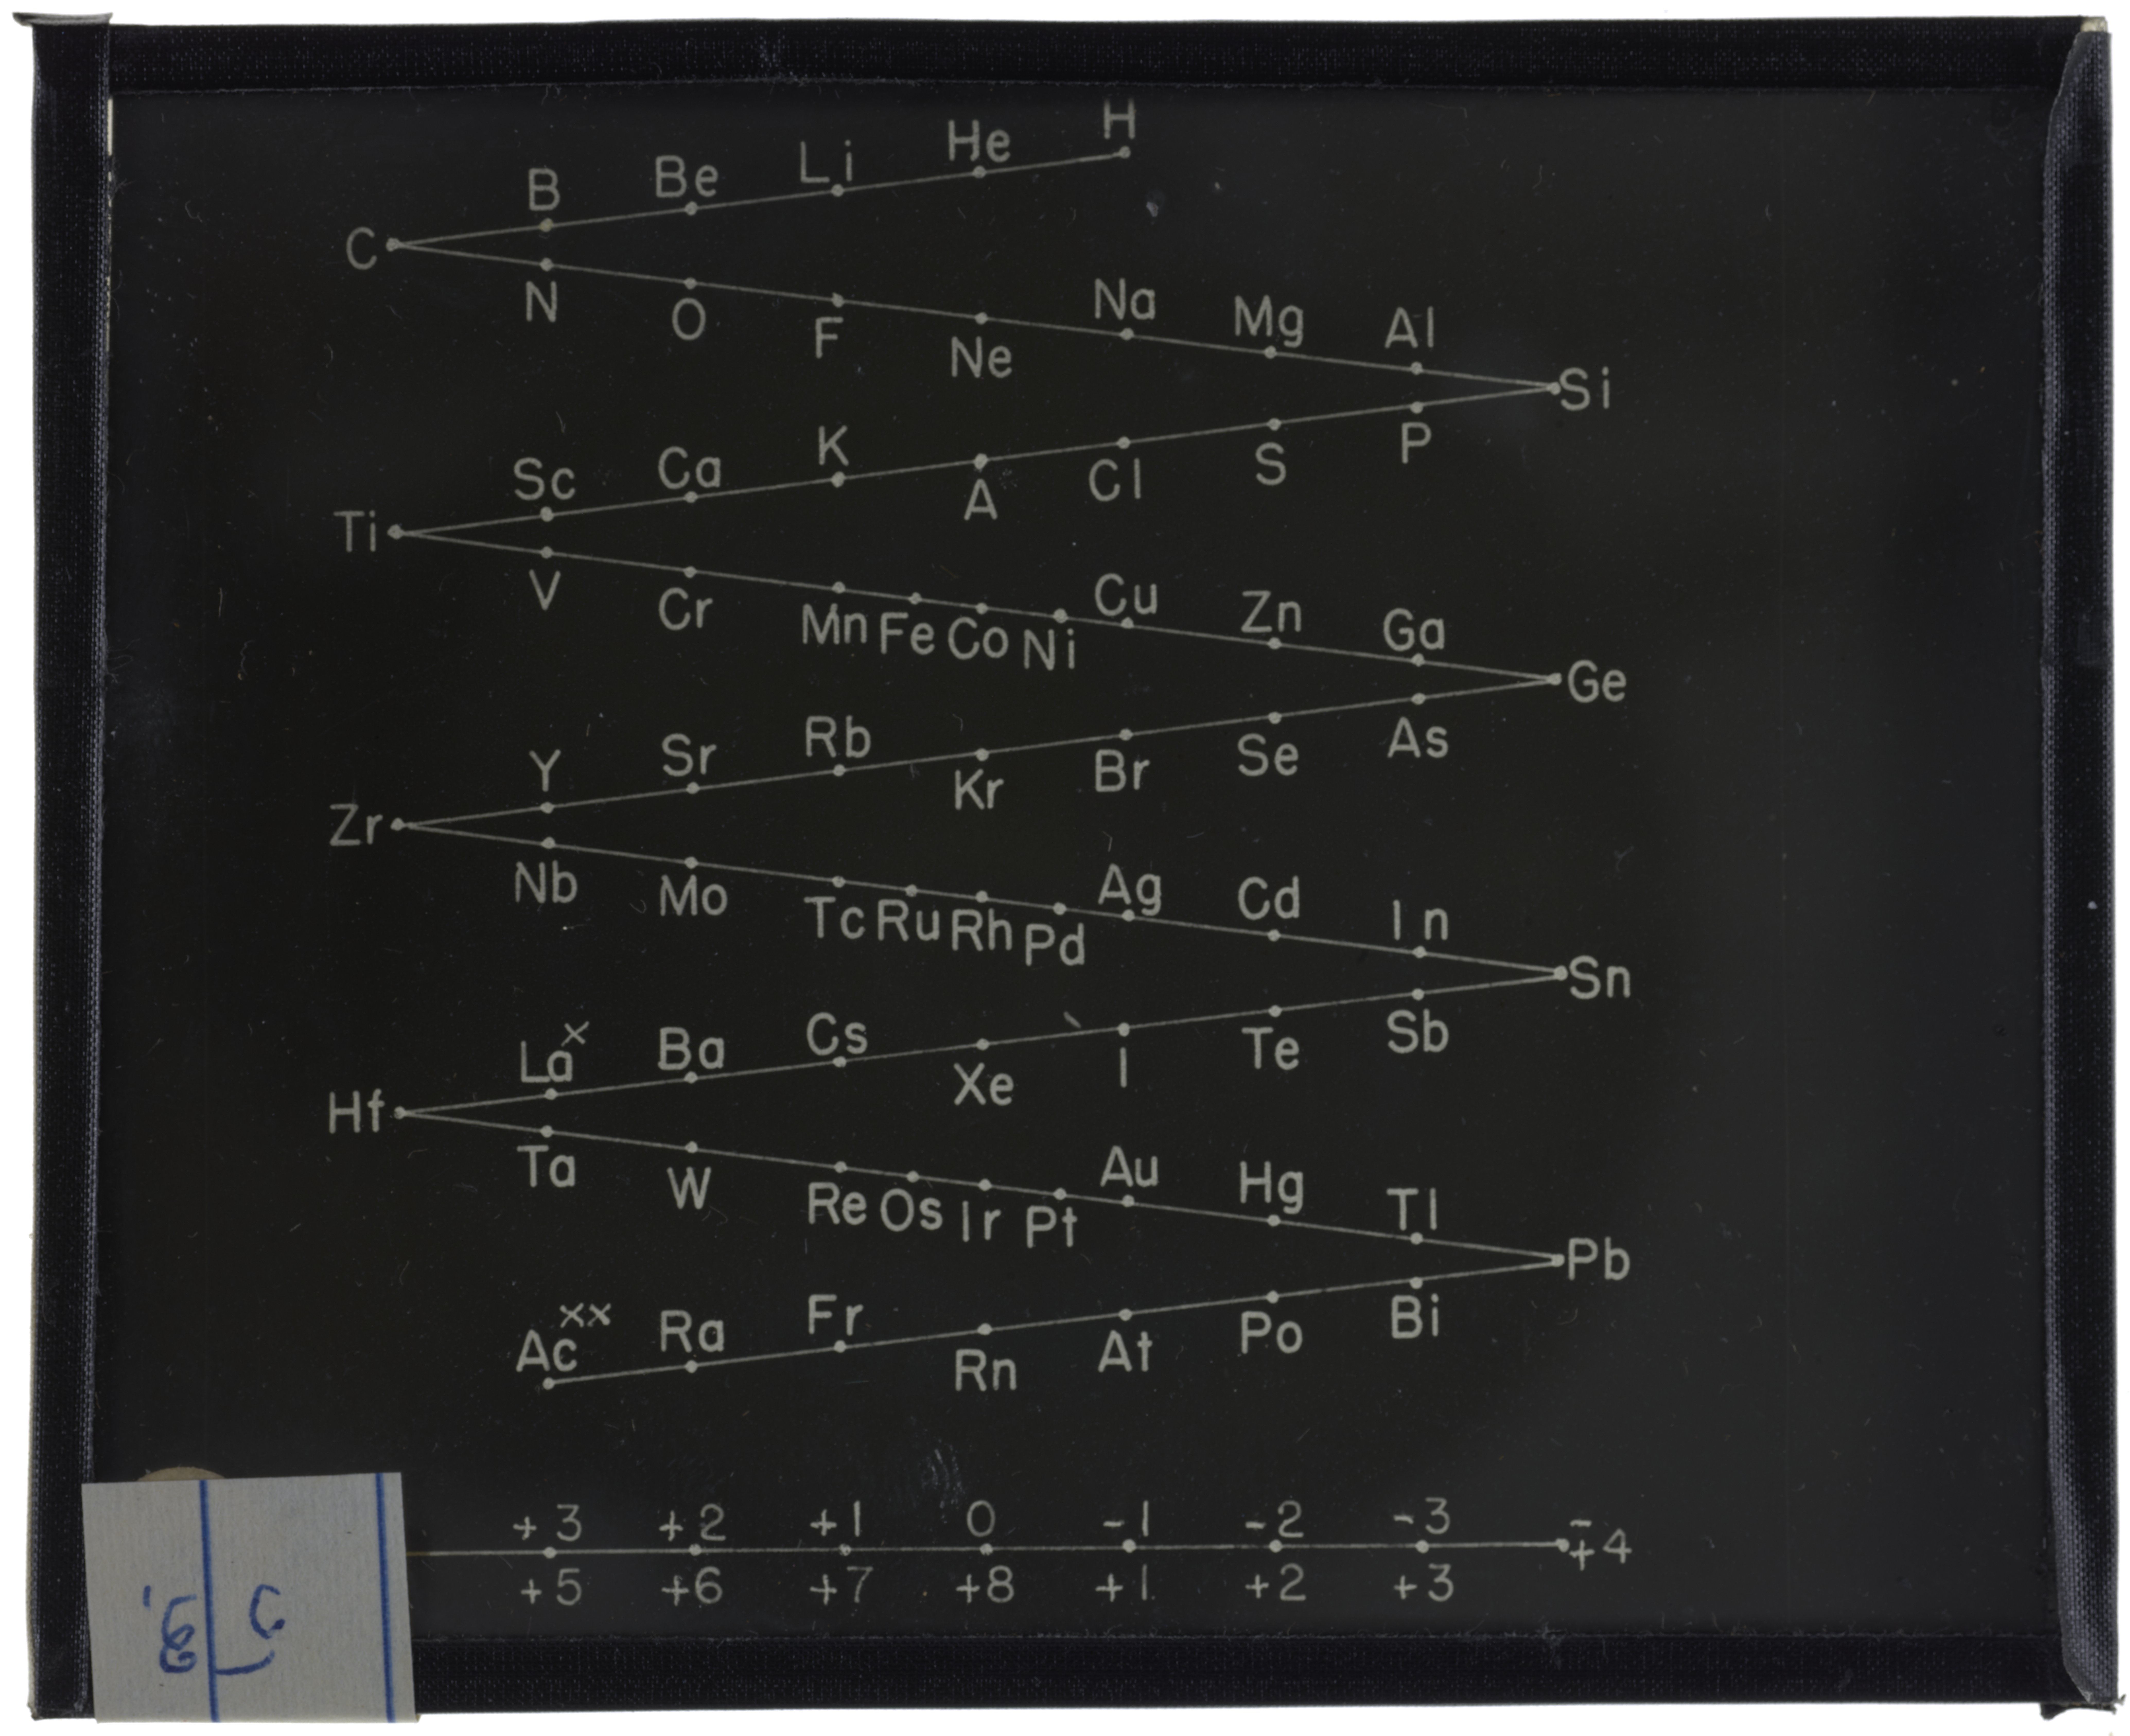 H
He
Li
Be
B
C
N
O
F
Ne
Na
Mg
Al
Si
P
S
Cl
A
K
Ca
Sc
Ti
V
Cr
Mn Fe Co Ni
Cu
Zn
Ga
Ge
As
Se
Br
Kr
Rb
Sr
Y
Zr
Nb
Mo
Tc Ru Rh Pd
Ag
Cd
In
Sn
Sb
Te
I
Xe
Cs
Ba
La×
Hf
Ta
W
Re Os Ir Pt
Au
Hg
Tl
Pb
Bi
Po
At
Rn
Fr
Ra
Ac××
+3 +2 +1 0 -1 -2 -3 ∓4
+5 +6 +7 +8 +1 +2 +3